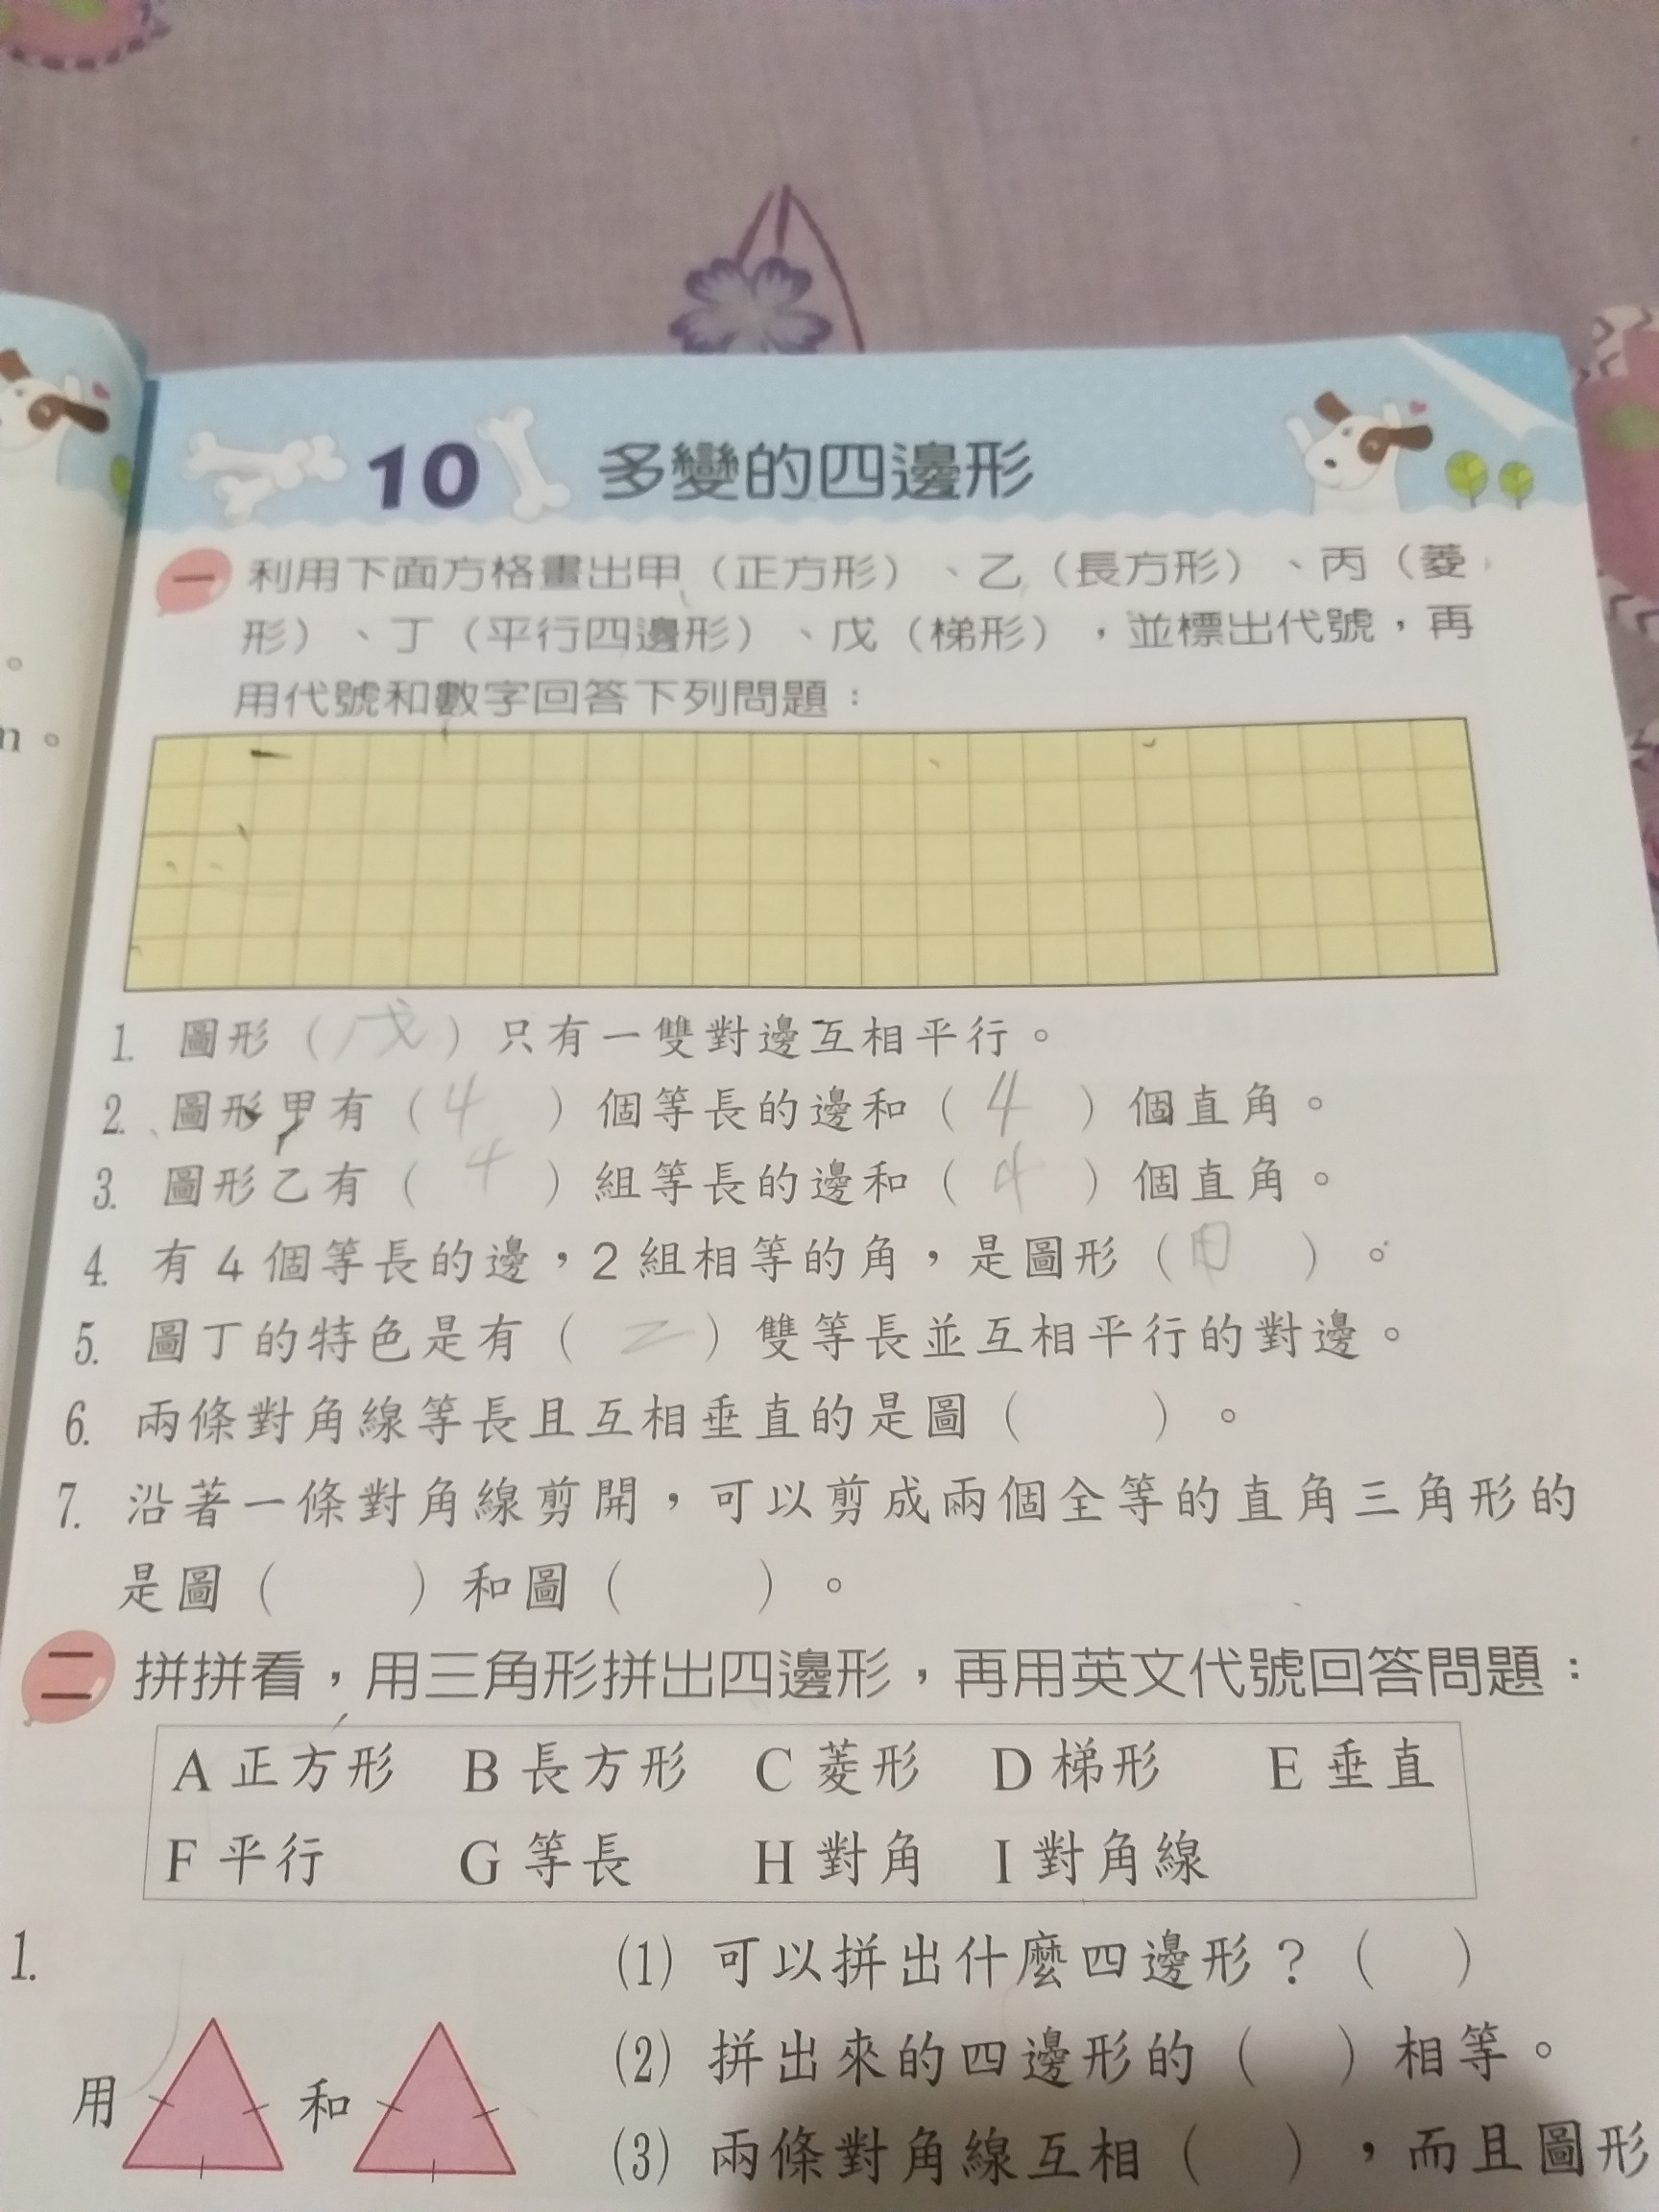 10 多變的四邊形
一 利用下面方格畫出甲（正方形）、乙（長方形）、丙（菱
形）、丁（平行四邊形）、戊（梯形），並標出代號，再
用代號和數字回答下列問題：
n。
1. 圖形（戊）只有一雙對邊互相平行。
2. 圖形甲有（4）個等長的邊和（4）個直角。
3. 圖形乙有（4）組等長的邊和（4）個直角。
4. 有4個等長的邊，2組相等的角，是圖形（甲）。
5. 圖丁的特色是有（二）雙等長並互相平行的對邊。
6. 兩條對角線等長且互相垂直的是圖（ ）。
7. 沿著一條對角線剪開，可以剪成兩個全等的直角三角形的
是圖（ ）和圖（ ）。
二 拼拼看，用三角形拼出四邊形，再用英文代號回答問題：
A 正方形 B 長方形 C 菱形 D 梯形 E 垂直
F 平行 G 等長 H 對角 I 對角線
1.
(1) 可以拼出什麼四邊形？（ ）
(2) 拼出來的四邊形的（ ）相等。
用 和
(3) 兩條對角線互相（ ），而且圖形